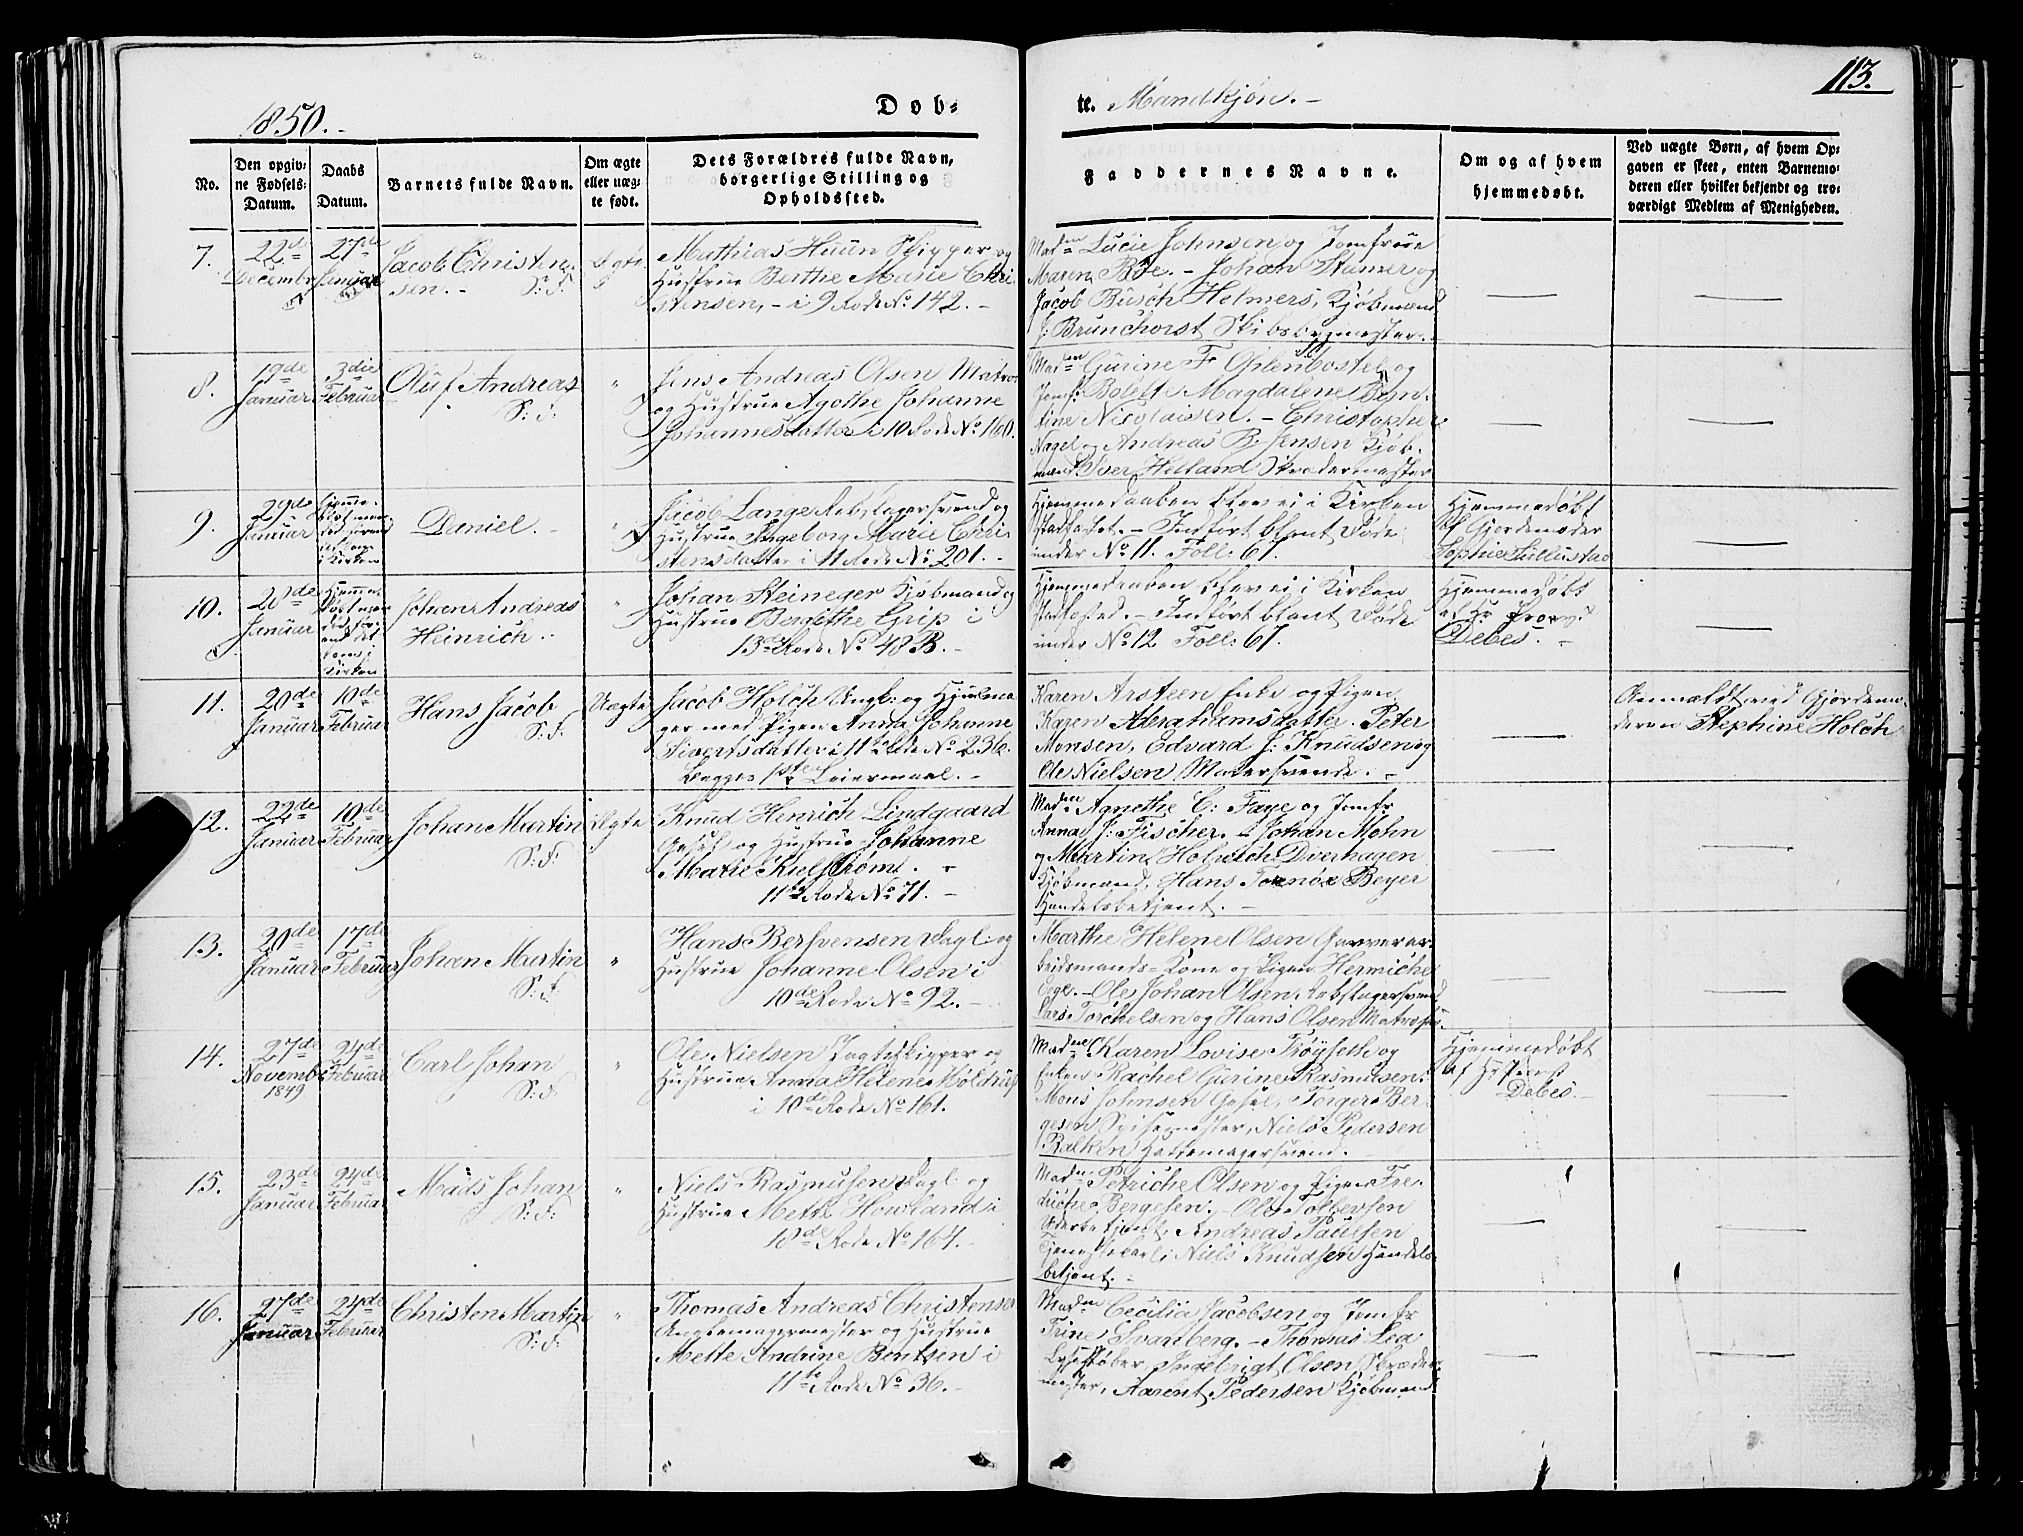 113.
1850.-
Dob-
te. Mandkjøn.-
No.
Den opgiv-
ne Fødsels-
Datum.
Daabs
Datum.
Barnets fulde Navn.
Om ægte
eller uæg-
te født.
Dets Forældres fulde Navn,
borgerlige Stilling og
Opholdssted.
Faddernes Navne.
Om og af hvem
hjemmedøbt.
Ved uægte Børn, af hvem Op-
gaven er skeet, enten Barnemo-
deren eller hvilket bekjendt og tro-
værdigt Medlem af Menigheden.
7.
22de
Decembr
27de
Januar
Jacob Christen
sen.- S:F:
Ægte
Mathias Huun Skipper og
Hustrue Berthe Marie Chri
stensen,- i 9 Rode No 142.-
Madme Lucie Johnsen og Jomfrue
Maren Bøe.- Johan Stamer og
Jacob Busch Helmers, Kjøbmænd
J: Brunchorst Skibsbygmester.
8.
19de
Januar
3die
Februar
Oluf Andreas
S:F:
"
Jens Andreas Olsen Matros
og Hustrue Agothe Johanne
Johannesdatter i 10 Rode No 160.
Madme Gurine F
og
Jomf: Bolette Magdalene
tine Nicolaisen.- Christopher
Nagel og Andreas B. Jensen Kjøb-
mænd. Iver Helland Skrædermester
9.
29de
Januar
Daniel.-
"
Jacob Lange Rebslagersvend og
Hustrue Ingeborg Marie Chri
stensdatter i 11 Rode No 201.-
Hjemmedaaben blev ei i Kirken
stadfæstet.- Indført blant Døde
under No 11. Foll: 67.
Hjemmedøbt
af Gjordemoder
Sophie
10.
20de
Januar
Hjemme-
døbt
Kirken
Johan Andreas
Heinrich..
"
Johan Steineger Kjøbmand og
Hustrue Bergithe Grip i
13de Rode No 48 B.-
Hjemmedaaben blev ei i Kirken
stadfæsted.- Indført blant Døde
under No 12 Foll: 67.
Hjemmedøbt
af Hr Provst
Debes.-
11.
20de
Januar
10de
Februar
Hans Jacob
S:F:
Uægte
Jacob Holch Ungk: og Hjulma
ger med Pigen Anna Johanne
Sivertsdatter i 11te Rode No 236.
Begges 1ste Leiermaal.-
Karen Arsteen Enke og Pigen
Karen Abrahamsdatter. Peter
Monsen, Edvard J: Knudsen og
Ole Nielsen Malersvende.-
Anmeldt ved Gjordemo-
deren Stephine Holch
12.
22de
Januar
10de
Februar
Johan Martin
S:F:
Ægte
Knud Henrich Lindgaard
Gesel og Hustrue Johanne
Marie Kielstrøm.
11te Rode No 71.-
Madme Agnethe C: Faye og Jomfr
Anna J: Fischer.- Johan Mohn
og Martin Holtrich Dverhagen
Kjøbmænd, Hans Tornøe Beyer
Handelsbetjent.-
13.
20de
Januar
17de
Februar
Johan Martin
S:F:
"
Hans Bersvensen Dagl: og
Hustrue Johanne Olsen i
10de Rode No 92.-
Marthe Helene Olsen Garverar-
beidsmands-Kone og Pigen Hermiche
Ege.- Ole Johan Olsen, Rebslagersvend
Lars Torchelsen og Hans Olsen Matroser.
14.
27de
Novembr
1849
24de
Februar
Carl Johan
S:F:
"
Ole Nielsen Jagteskipper og
Hustrue Anna Helene Moldrup
i 10de Rode No 161.
Madme Karen Lovise Trøyseth og
Enken Rachel Gurine Rasmusen.
Mons Johnsen Gesel, Torger Ber
gesen Spisemester, Niels Pedersen
Balken Hattemagersvend.
Hjemmedøbt
af Hr Provst
Debes.-
15.
23de
Januar
24de
Februar
Mads Johan
S:F:
"
Niels Rasmusen Dagl: og
Hustrue Mette Howland i
10de Rode No 164.-
Madme Petriche Olsen og Pigen Fre-
driche Bergesen.- Ole Tollevsen
Andreas Paulsen
Tjenestekarl, Niels Knudsen Handels-
betjent.-
16.
27de
Januar
24de
Februar
Christen Martin
S:F:
"
Thomas Andreas Christensen
og Hustrue
Mette Andrine Bentsen i
11te Rode No 36.-
Madme Cecilia Jacobsen og Jomfr
Trine Svanberg.- Thomas Lea
Lysestøber, Ingebrigt Olsen Skræder-
mester, Aarent Pedersen Kjøbmand